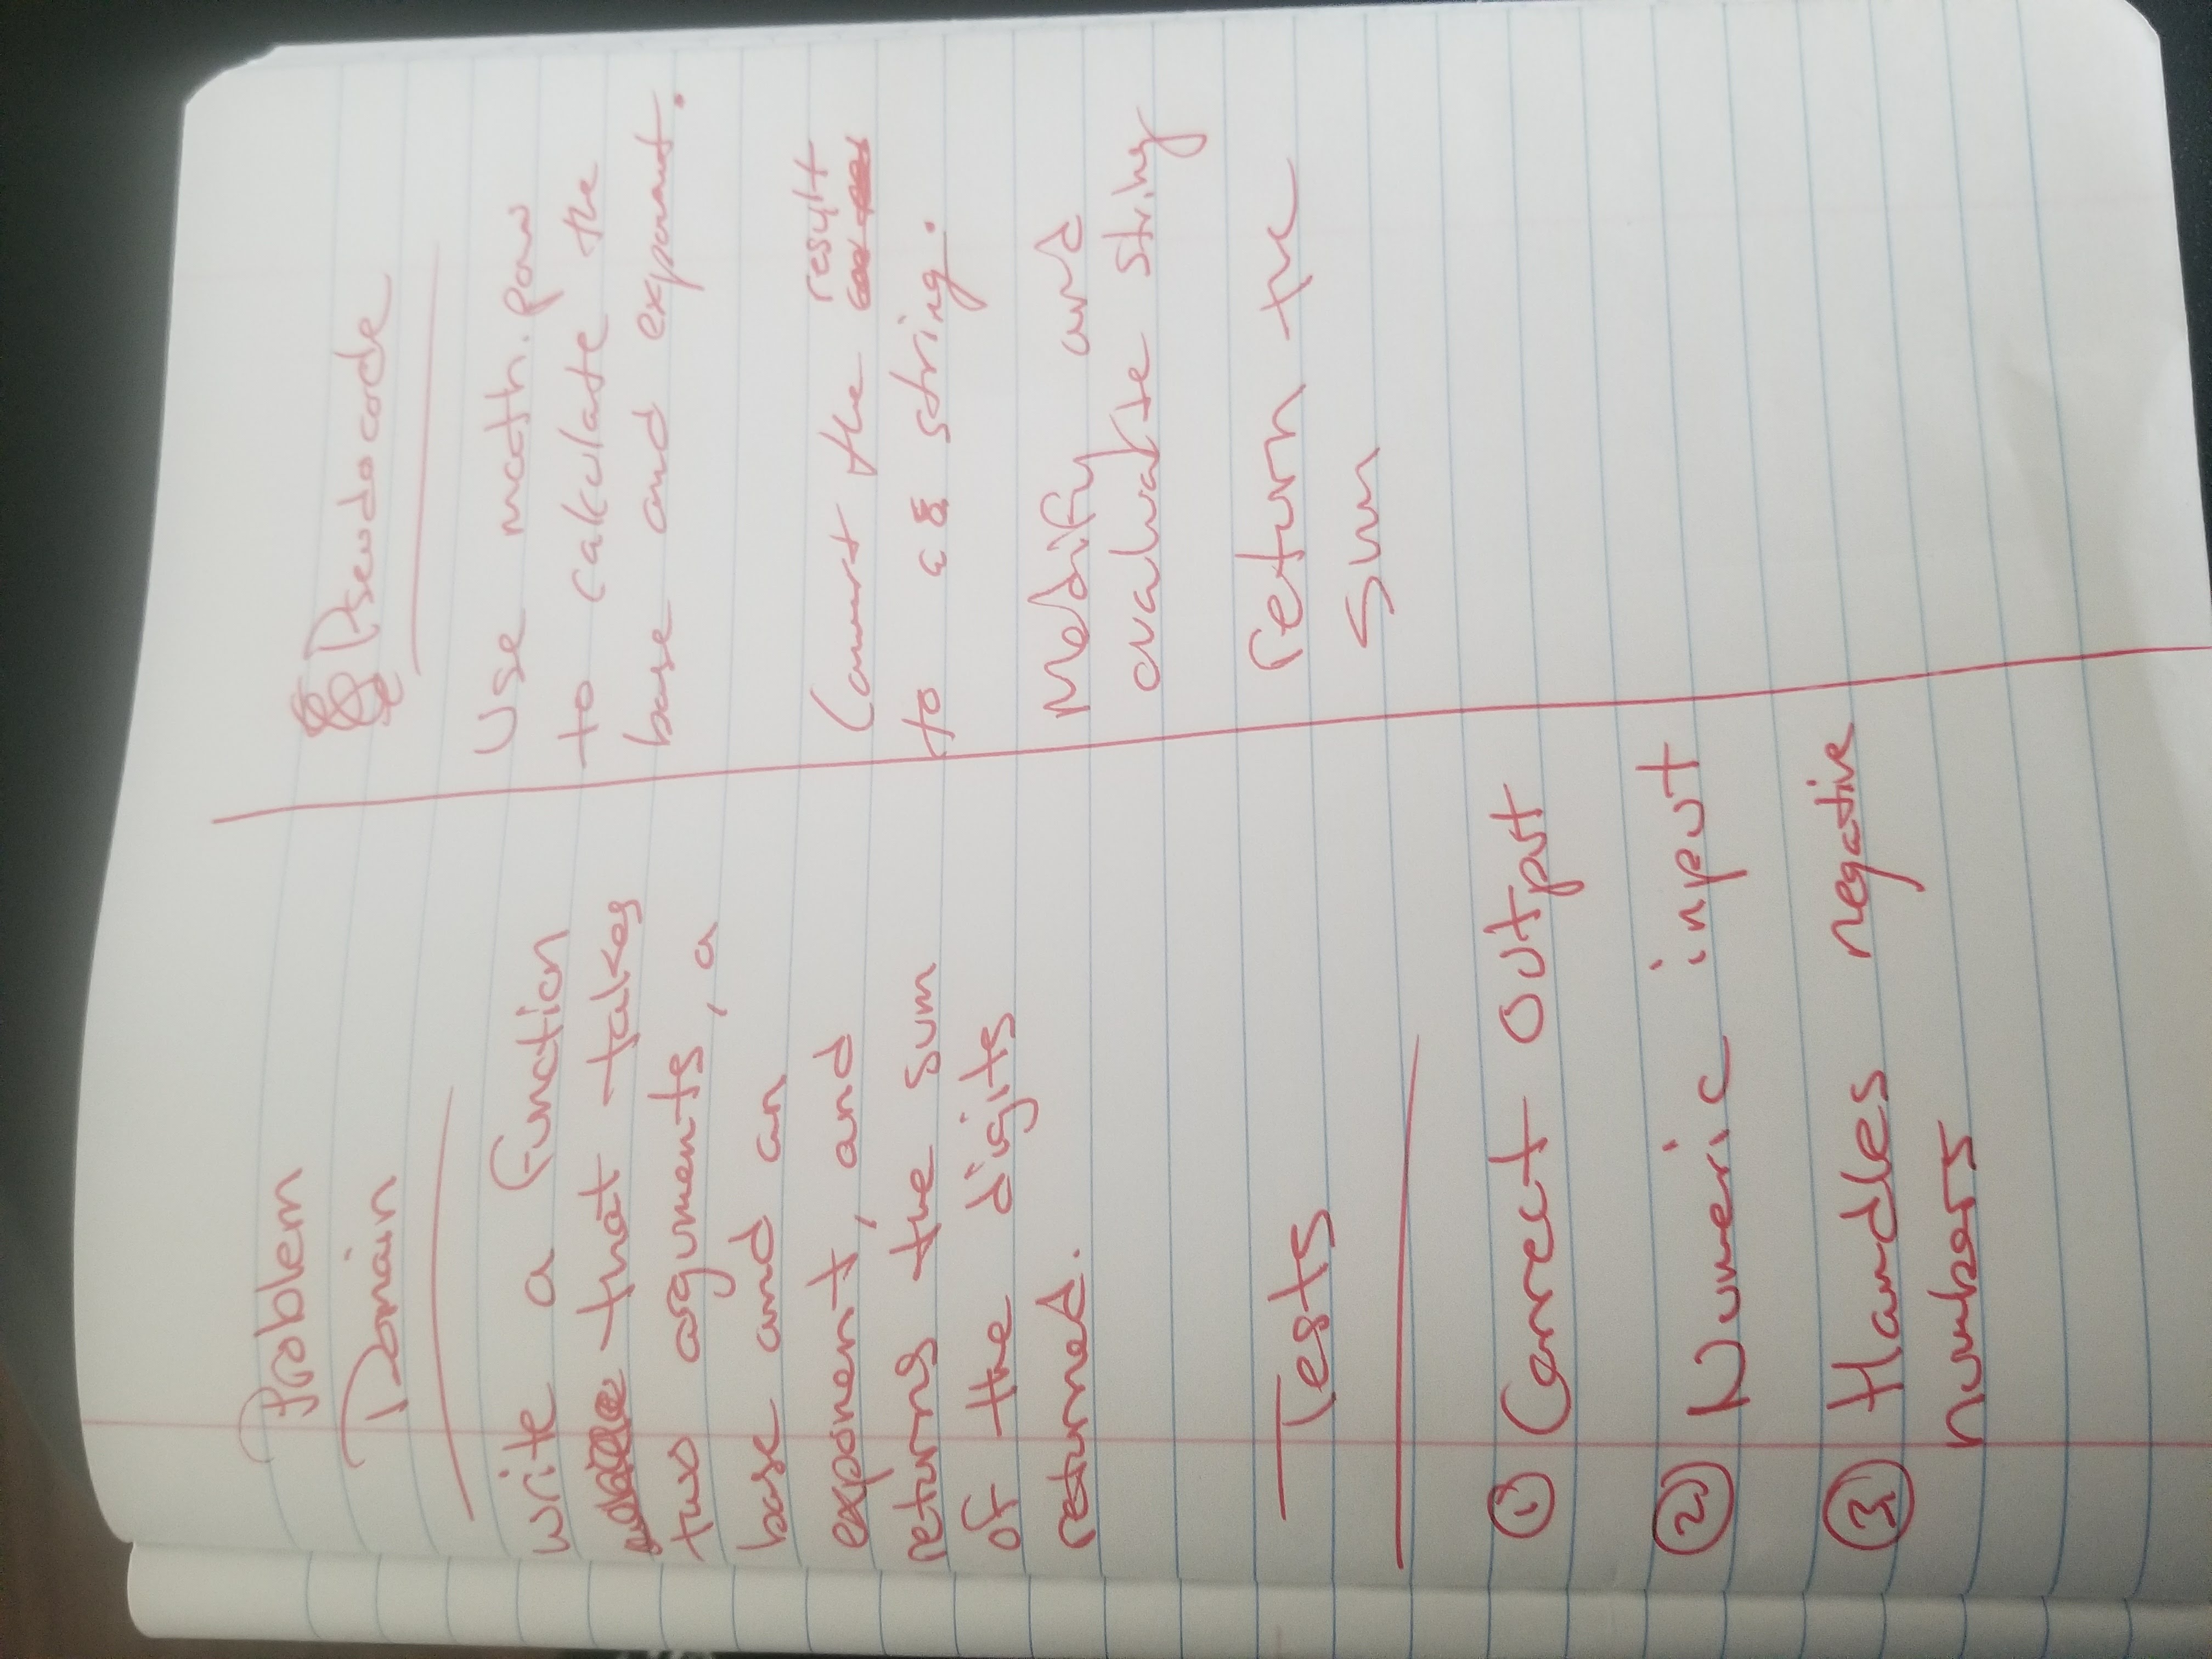 Problem
Domain
write a function
that takes
two arguments, a
base and an
exponent, and
returns the sum
of the digits
returned.
Tests
① Correct Output
② Numeric input
③ Handles negative
numbers
Pseudocode
Use math.pow
to calculate the
base and exponent.
Convert the result
to a string.
Modify and
evaluate string
return the
sum